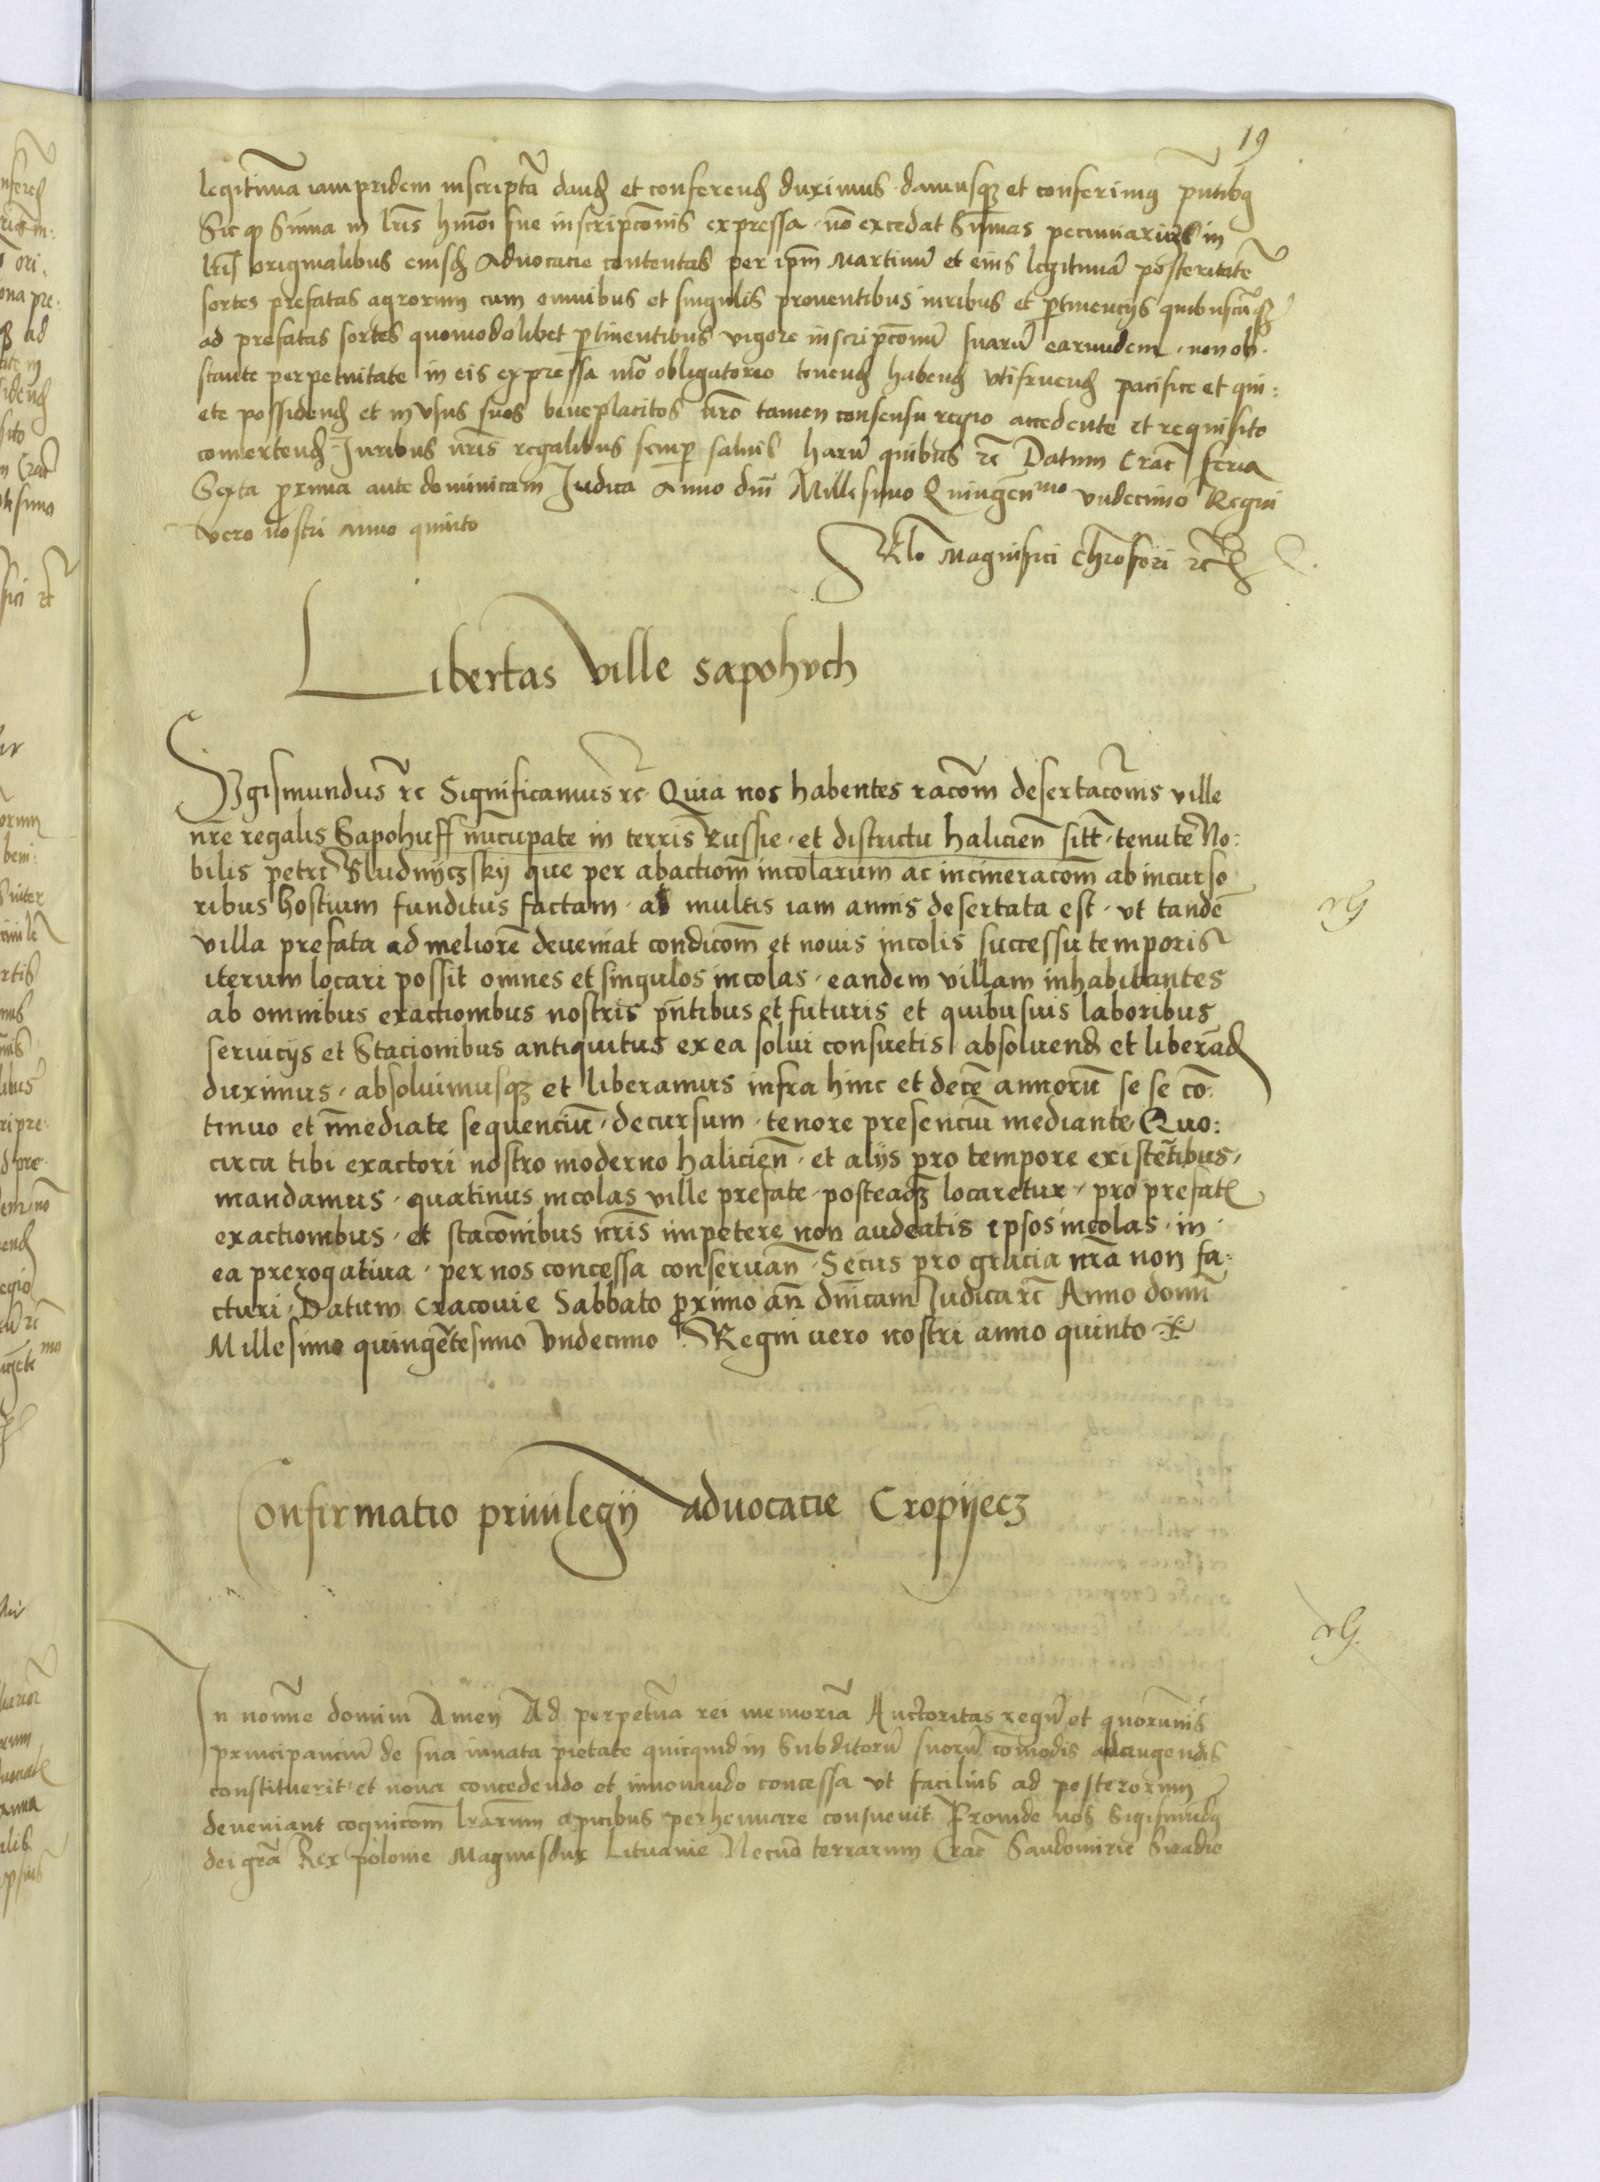 19
legittima iampridem inscripta dand et conferend duximus damusqz et conferimus pntibus
Sic qp Suma in lris hmoi sue inscripcois expressa no excedat Sumas pecuniarias in
lris originalibus eiusd Advocacie contentas per ipm Martinu et eius legittima posteritate
sortes prefatas agrorum cum omnibus et singulis proventibus iuribus et ptinencijs quibuscuqz
ad prefatas sortes quomodolibet ptinentibus vigore inscripconu suaru earundem non ob
stante perpetuitate in eis expressa mo obligatorio tenend habend utifruend pacifice et qui:
ete possidend et in usus suos beneplacitos nro tamen consensu regio accedente et requisito
convertend Juribus nris regalibus semp salvis haru quibus rc Datum Crac feria
Sexta proxima ante dominicam Judica Anno dni Millesimo Quingenmo undecimo Regni
vero nostri anno quinto
Rlo Magnifici Chrofori rc
Libertas ville sapohvch
Sygismundus rc Significamus rc Quia nos habentes racom desertacois ville
nre regalis Sapohuff nucupate in terris Russie et districtu halicien sitt tenute No:
bilis petri Sludnyczskij que per abactiom incolarum ac incineracom ab incurso
ribus hostium funditus factam a multis iam annis desertata est ut tande
villa prefata ad meliore deveniat condicom et novis incolis successu temporis
iterum locari possit omnes et singulos incolas eandem villam inhabitantes
ab omnibus exactionibus nostris pntibus et futuris et quibusvis laboribus
servicijs et Stacionibus antiquitus ex ea solvi consuetis absolvend et liberad
duximus absolvimusqz et liberamus infra hinc et dece annoru se se co:
tinuo et imediate sequenciu decursum tenore presenciu mediante Quo:
circa tibi exactori nostro moderno halicien et alijs pro tempore existetibus
mandamus quatinus incolas ville prefate posteaqz locaretur pro prefat
exactionibus et stacoibus nris impetere non audeatis ipsos incolas in
ea prerogativa per nos concessa conservan Secus pro gracia nra non fa:
cturi Datum Cracovie Sabbato proximo an dnicam Judica rc Anno domi
Millesimo quingetesimo Undecimo Regni vero nostri anno quinto
Confirmatio privilegij advocacie Cropijecz
In nomine domini Amen Ad perpetua rei memoria Auctoritas regu et quorumvis
principanciu de sua innata pietate quicquid in Subditoru suoru comodis adaugendis
constituerit et nova concedendo et innovando concessa ut facilius ad posterorum
deveniant cognicom lrarum apicibus perhennare consuevit Proinde nos Sigismudus
dei gra Rex polonie Magnusdux Lituanie Necno terrarum Crac Sandomirie Siradie